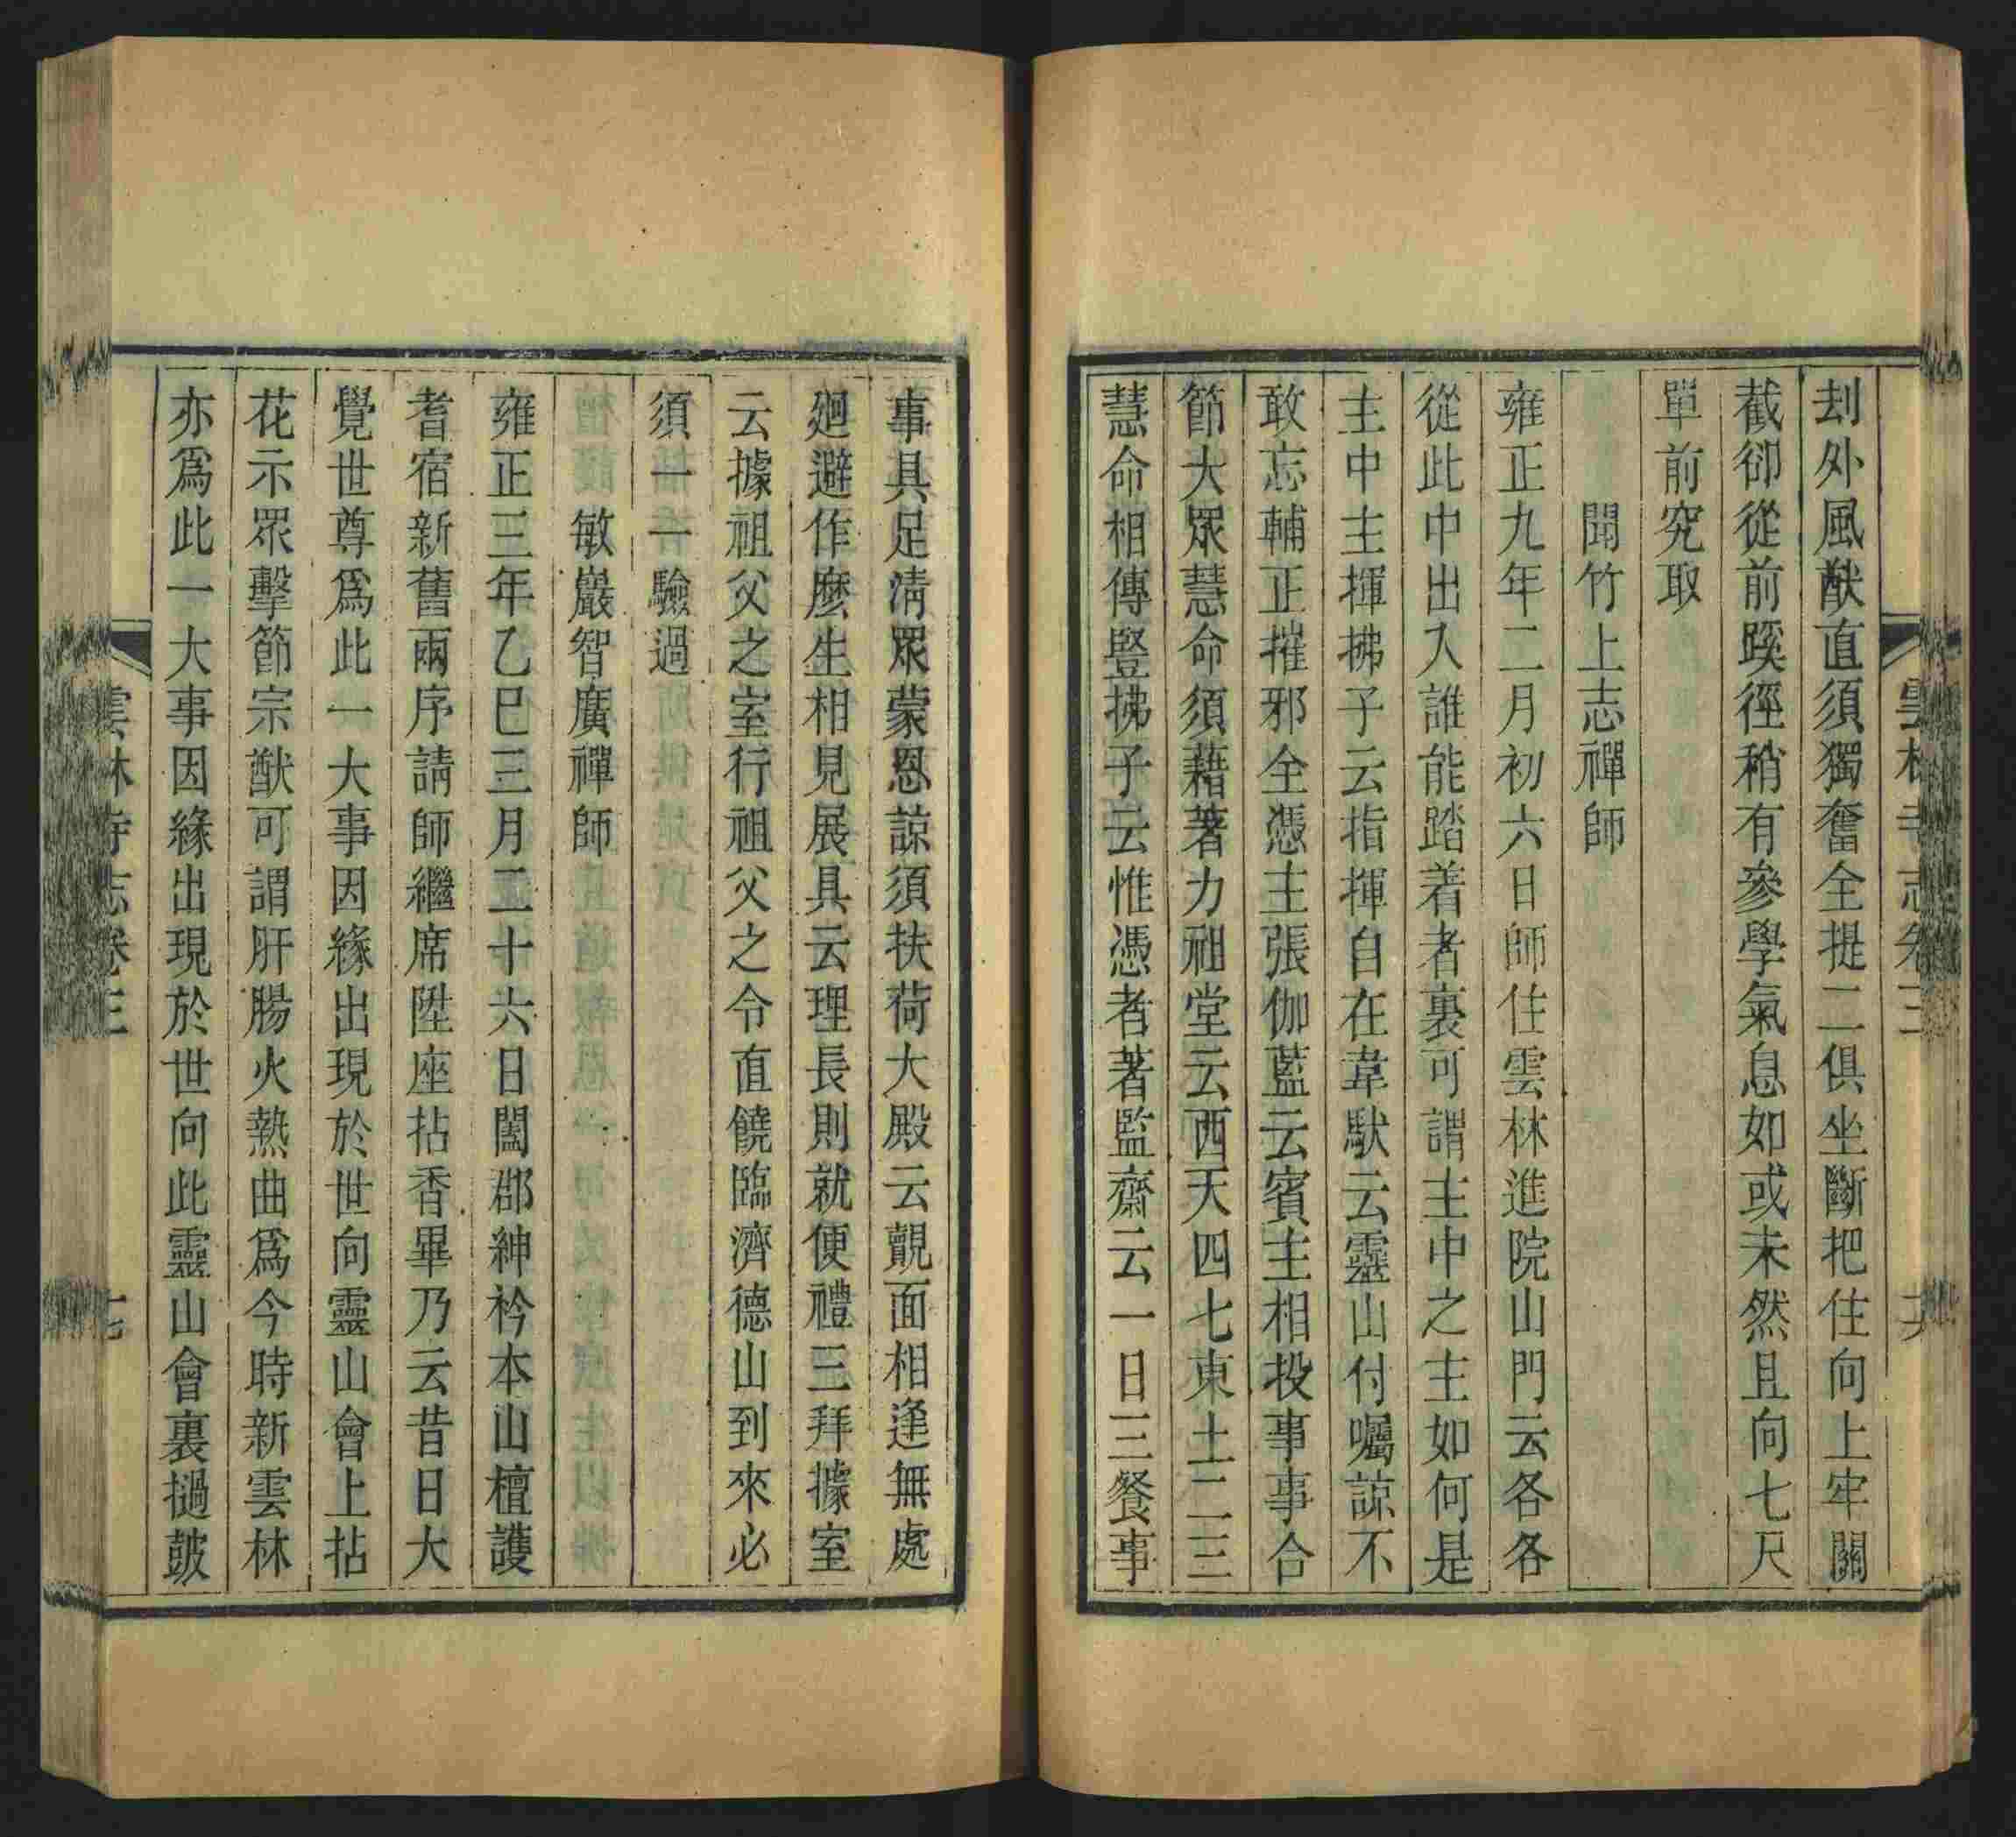 刦外風猷直須獨奮全提二俱坐斷把住向上牢關
截卻從前蹊徑稍有參學氣息如或未然且向七尺
單前究取
聞竹上志禪師
雍正九年二月初六日師住雲林進院山門云各各
從此中出入誰能踏着者裏可謂主中之主如何是
主中主揮拂子云指揮自在韋馱云靈山付囑諒不
敢忘輔正摧邪全憑主張伽藍云賓主相投事事合
節大衆慧命須藉著力祖堂云西天四七東土二三
慧命相傳豎拂子云惟憑者著監齋云一日三餐事
事具足淸眾蒙恩諒須扶荷大殿云覿面相逢無處
廻避作麽生相見展具云理長則就便禮三拜據室
云據祖父之室行祖父之令直饒臨濟德山到來必
須一一驗過
敏巖智廣禪師
雍正三年乙巳三月二十六日闔郡紳衿本山檀護
耆宿新舊兩序請師繼席陞座拈香畢乃云昔日大
覺世尊爲此一大事因緣出現於世向靈山會上拈
花示眾擊節宗猷可謂肝腸火熱曲爲今時新雲林
亦爲此一大事因緣出現於世向此靈山會裏撾皷
雲林寺志卷三